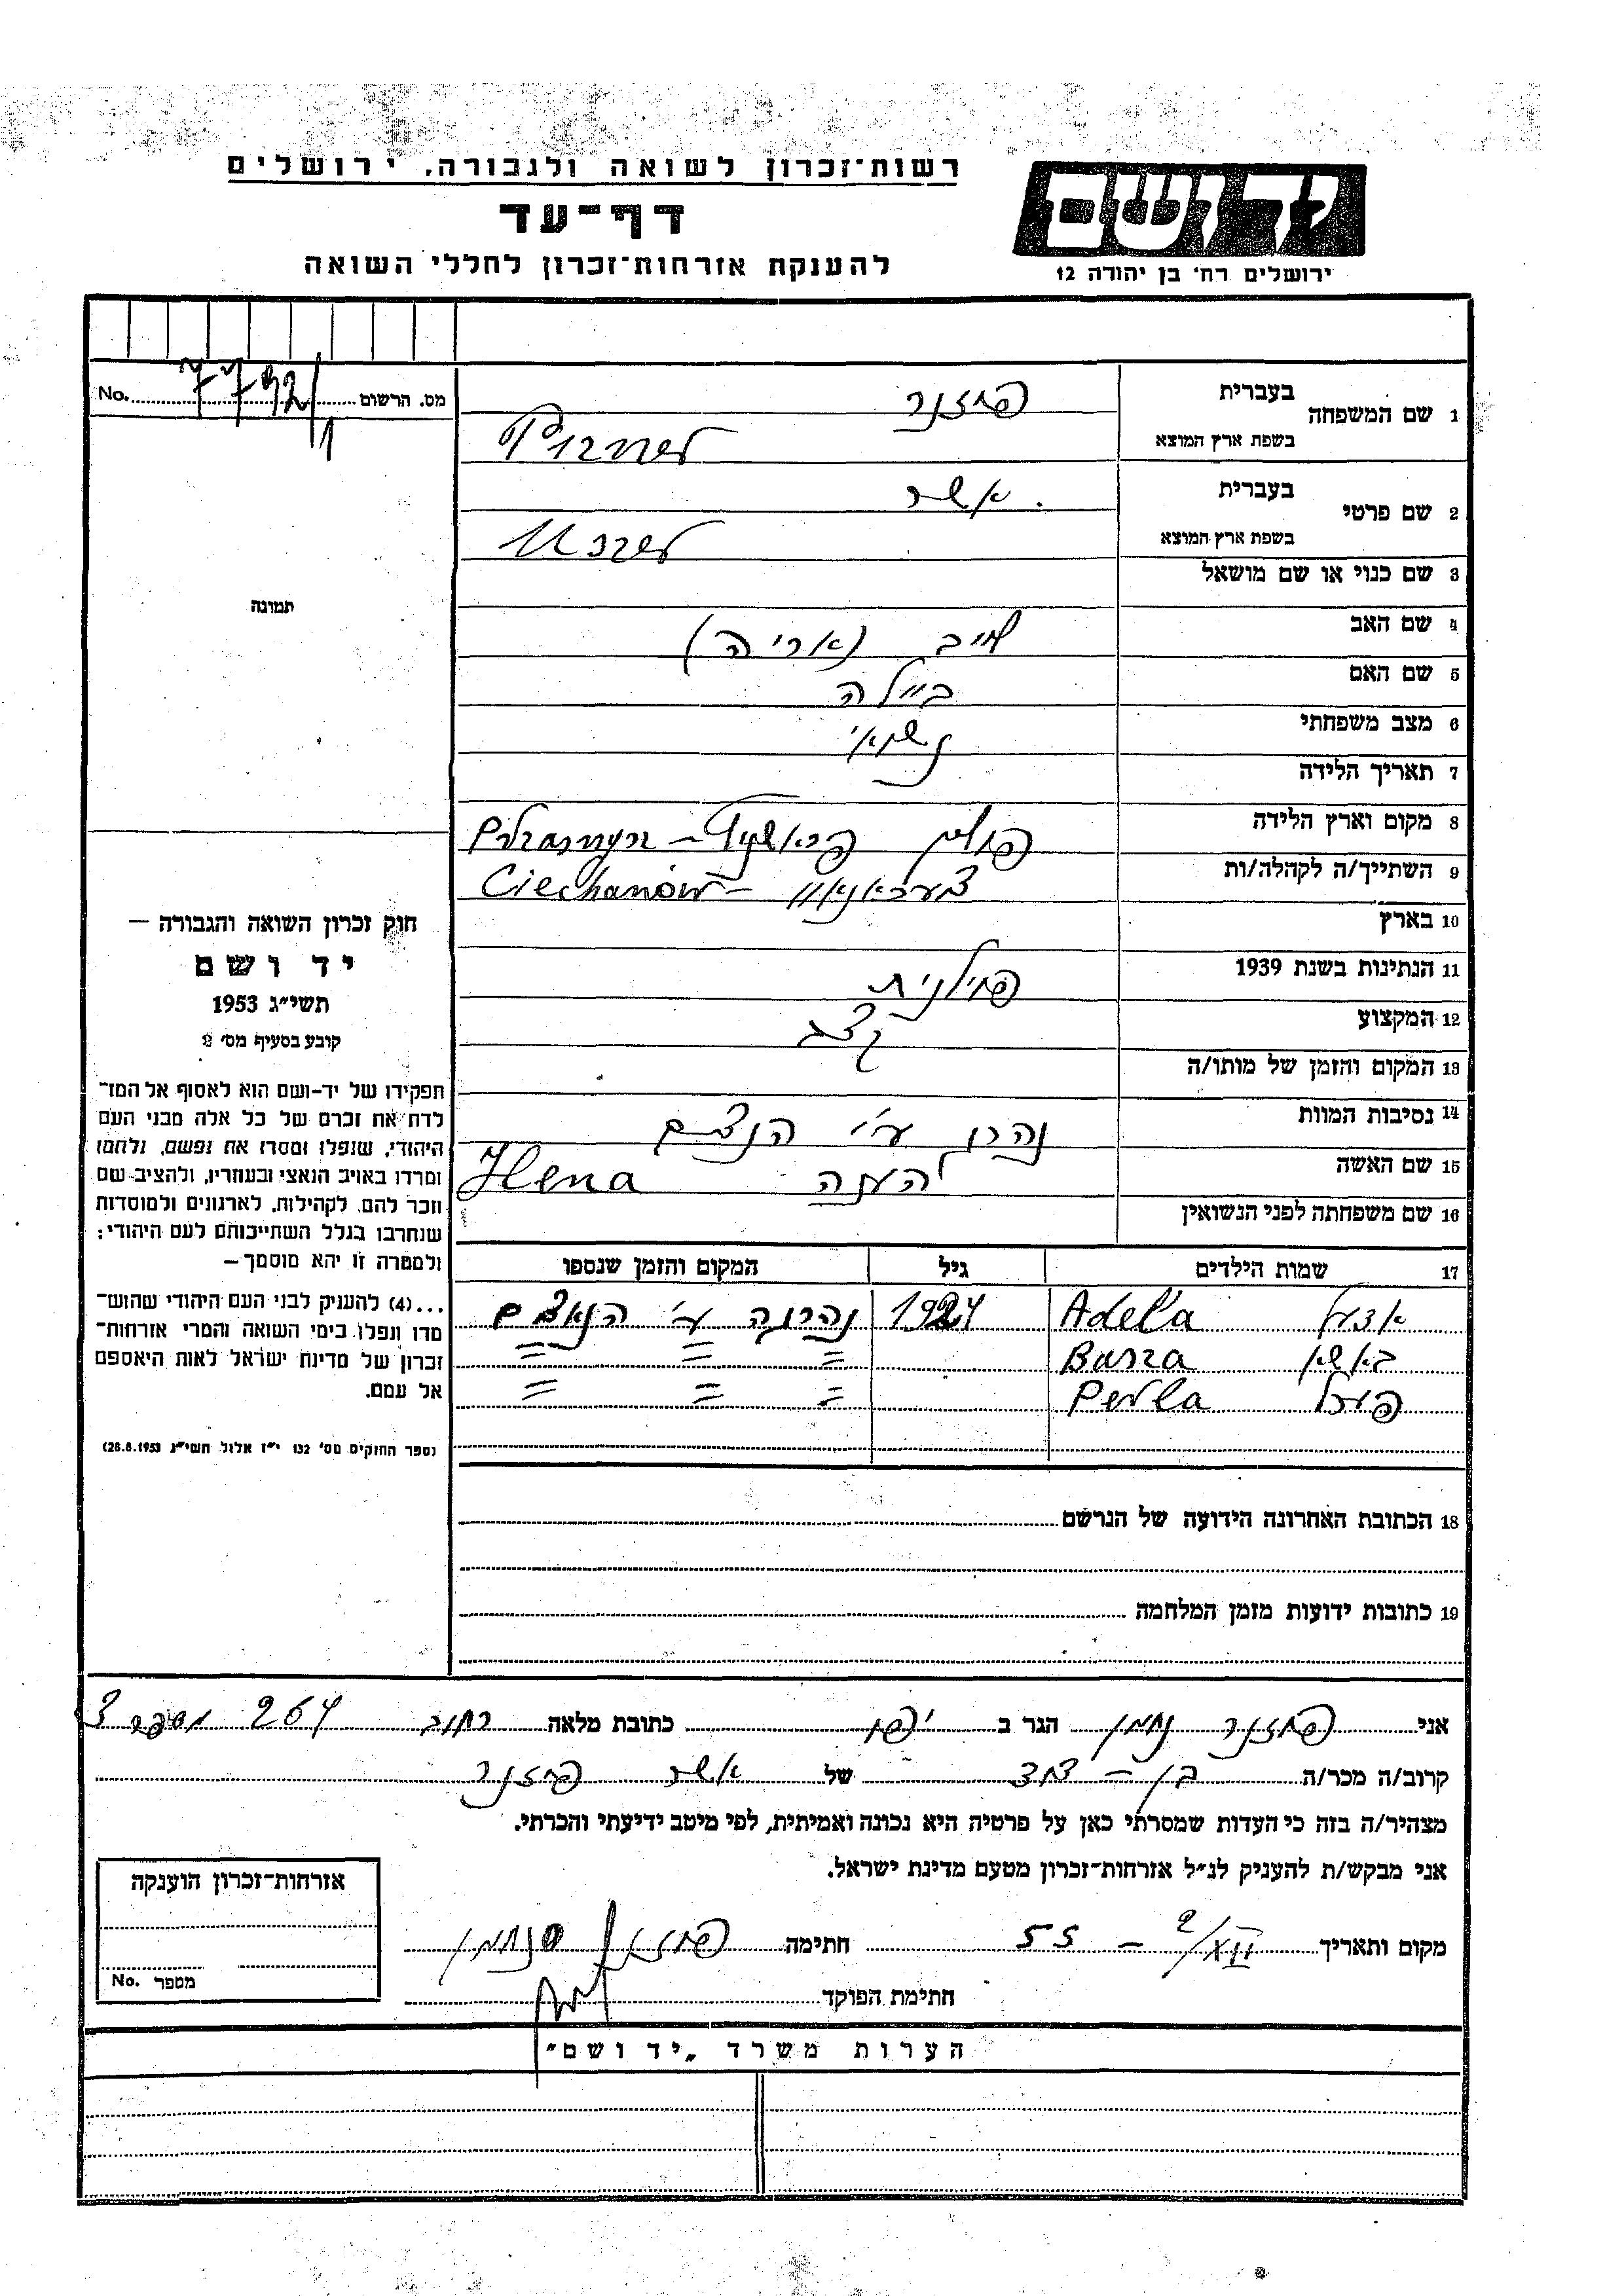 רשות־זכרון לשואה ולגבורה, ירושלים
דף־עד
להענקת אזרחות־זכרון לחללי השואה
יד ושם
ירושלים רח' בן יהודה 12
No. 7792/ מס. הרשום
1 שם המשפחה
בעברית
בשפת ארץ המוצא
2 שם פרטי
בעברית אשר
בשפת ארץ המוצא Uszer
3 שם כנוי או שם מושאל
4 שם האב לייב (אריה)
5 שם האם ביילה
6 מצב משפחתי נשוא'
7 תאריך הלידה
8 מקום וארץ הלידה פולין
9 השתייך/ה לקהלה/ות Ciechanów
10 בארץ
11 הנתינות בשנת 1939 פולנית
12 המקצוע קצב
13 המקום והזמן של מותו/ה
14 נסיבות המוות נהרג ע"י הנצים
15 שם האשה
16 שם משפחתה לפני הנשואין
17 שמות הילדים גיל המקום והזמן שנספו
Adela 1924 נהרגה ע"י הנאצים
באשא Buszа = = =
פערל Perla = = =
18 הכתובת האחרונה הידועה של הנרשם
19 כתובות ידועות מזמן המלחמה
תמונה
חוק זכרון השואה והגבורה –
יד ושם
תשי"ג 1953
קובע בסעיף מס' 2
תפקידו של יד-ושם הוא לאסוף אל המו־
לדת את זכרם של כל אלה מבני העם
היהודי, שנפלו ומסרו את נפשם, נלחמו
ומרדו באויב הנאצי ובעוזריו, ולהציב שם
וזכר להם, לקהילות, לארגונים ולמוסדות
שנחרבו בגלל השתייכותם לעם היהודי;
ולמטרה זו יהא מוסמך –
...(4) להעניק לבני העם היהודי שהוש־
מדו ונפלו בימי השואה והמרי אזרחות־
זכרון של מדינת ישראל לאות היאספם
אל עמם.
(ספר החוקים מס' 132 י"ז אלול תשי"ג 28.8.1953)
אני נחמן הגר ב יפו כתובת מלאה רחוב 264 מספר 3
קרוב/ה מכר/ה בן – דוד של אשר
מצהיר/ה בזה כי העדות שמסרתי כאן על פרטיה היא נכונה ואמיתית, לפי מיטב ידיעתי והכרתי.
אני מבקש/ת להעניק לנ"ל אזרחות־זכרון מטעם מדינת ישראל.
מקום ותאריך 2/XII – 55 חתימה
חתימת הפוקד
אזרחות־זכרון הוענקה
מספר No.
הערות משרד "יד ושם"